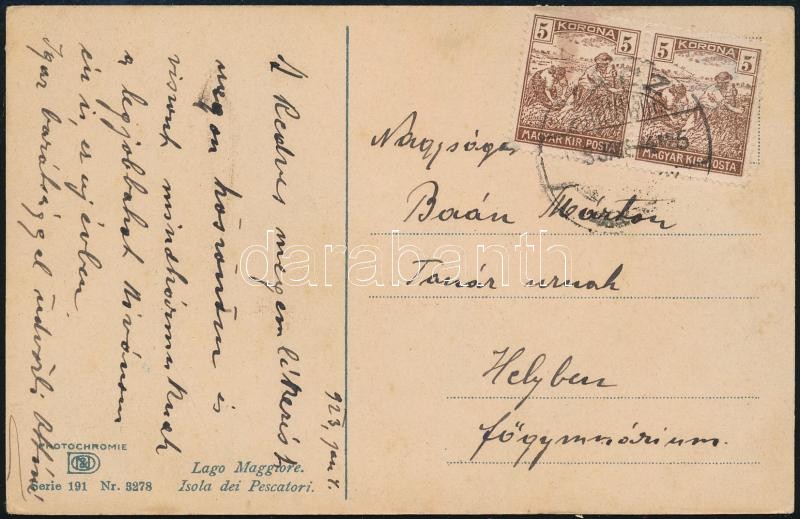 923, jan 4.
A kedves megemlékezést
nagyon köszönöm és
viszont mindhármuknak
a legjobbakat kivánom
én is, ez uj évben
Igaz barátsággal üdvözli
5 KORONA 5
MAGYAR KIR. POSTA
5 KORONA 5
MAGYAR KIR. POSTA
Nagyságos
Baán Márton
Tanár urnak
Helyben
főgymnázium.
PHOTOCHROMIE
Serie 191 Nr. 3278
Lago Maggiore.
Isola dei Pescatori.
darabanth